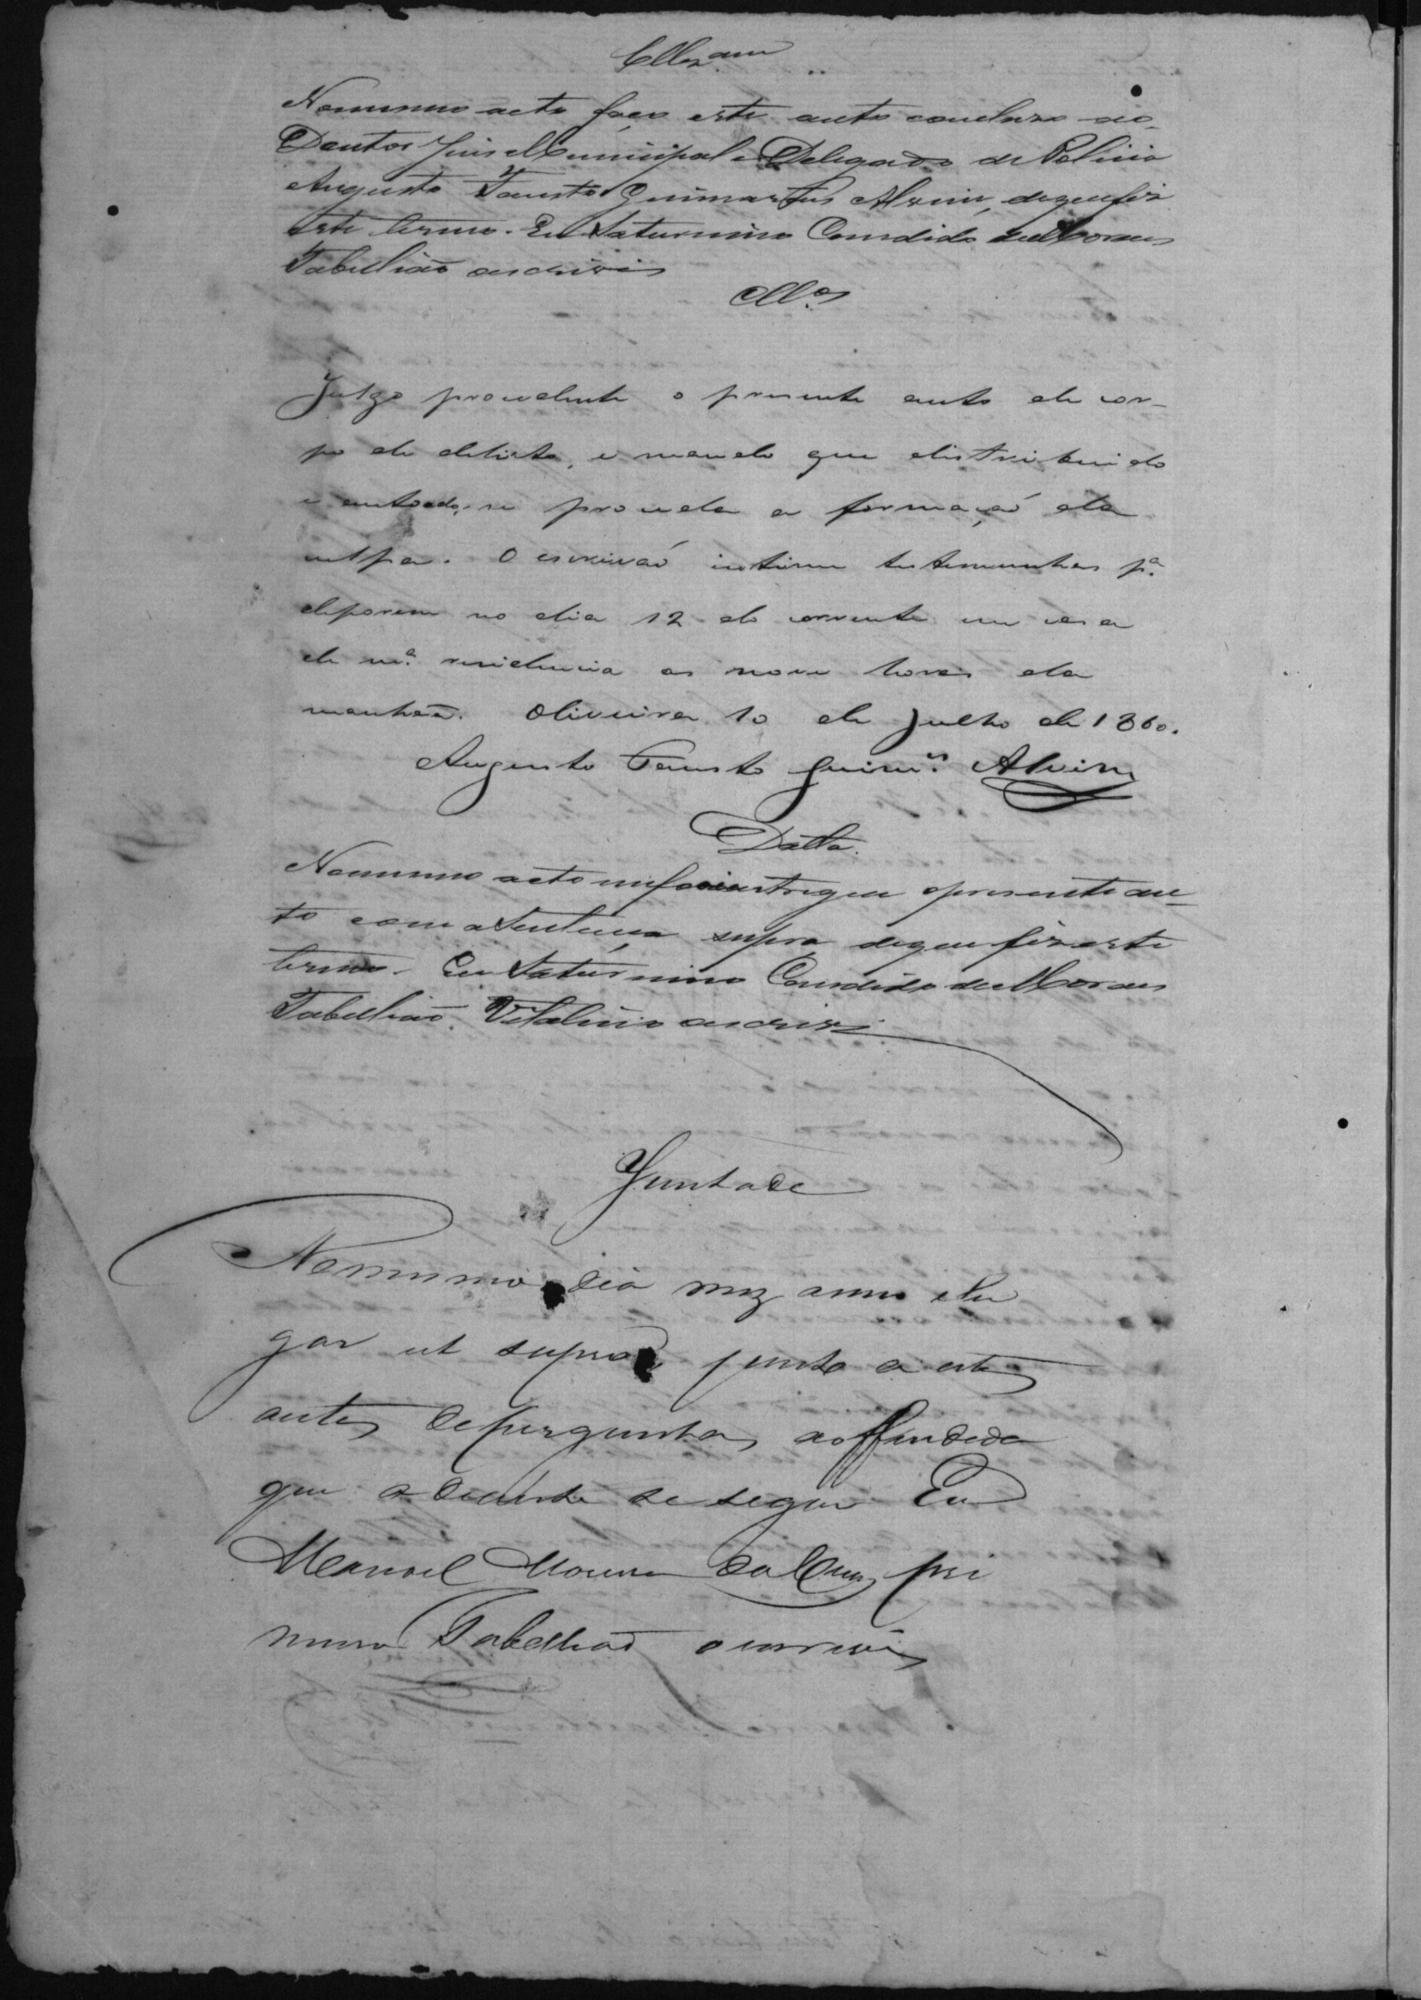 Cllzam
Nomesmo acto faço este auto concluzo ao
Doutor Juis Municipal e Delegado de Policia
Augusto Fausto Guimarães Alvim, dequefiz
este termo. Eu Saturnino Candido de Moraes
Tabellião escrivi
Cllos
Julgo procedente o presente auto de cor-
po de delicto, e mando que distribuido
e autoado, se proceda a formação da
culpa. O escrivaõ intime testemunhas pª.
deporem no dia 12 do corrente em casa
de mª. residencia as nove horas da
manhaã. Oliveira 10 de Julho de 1860.
Augusto Fausto Guimes. Alvim
Datta.
Nomesmo acto mefoi entregue opresente au-
to com a Sentença supra dequefiz este
termo. Eu Saturnino Candido de Moraes
Tabellião Vitalicio escrivi
Juntade
Nomesmo dia mez anno elu
gar ut supra junto a estes
autos deperguntas aoffendida
que adeante se segue Eu
Manoel pri
meiro Tabelliaõ o escrevi